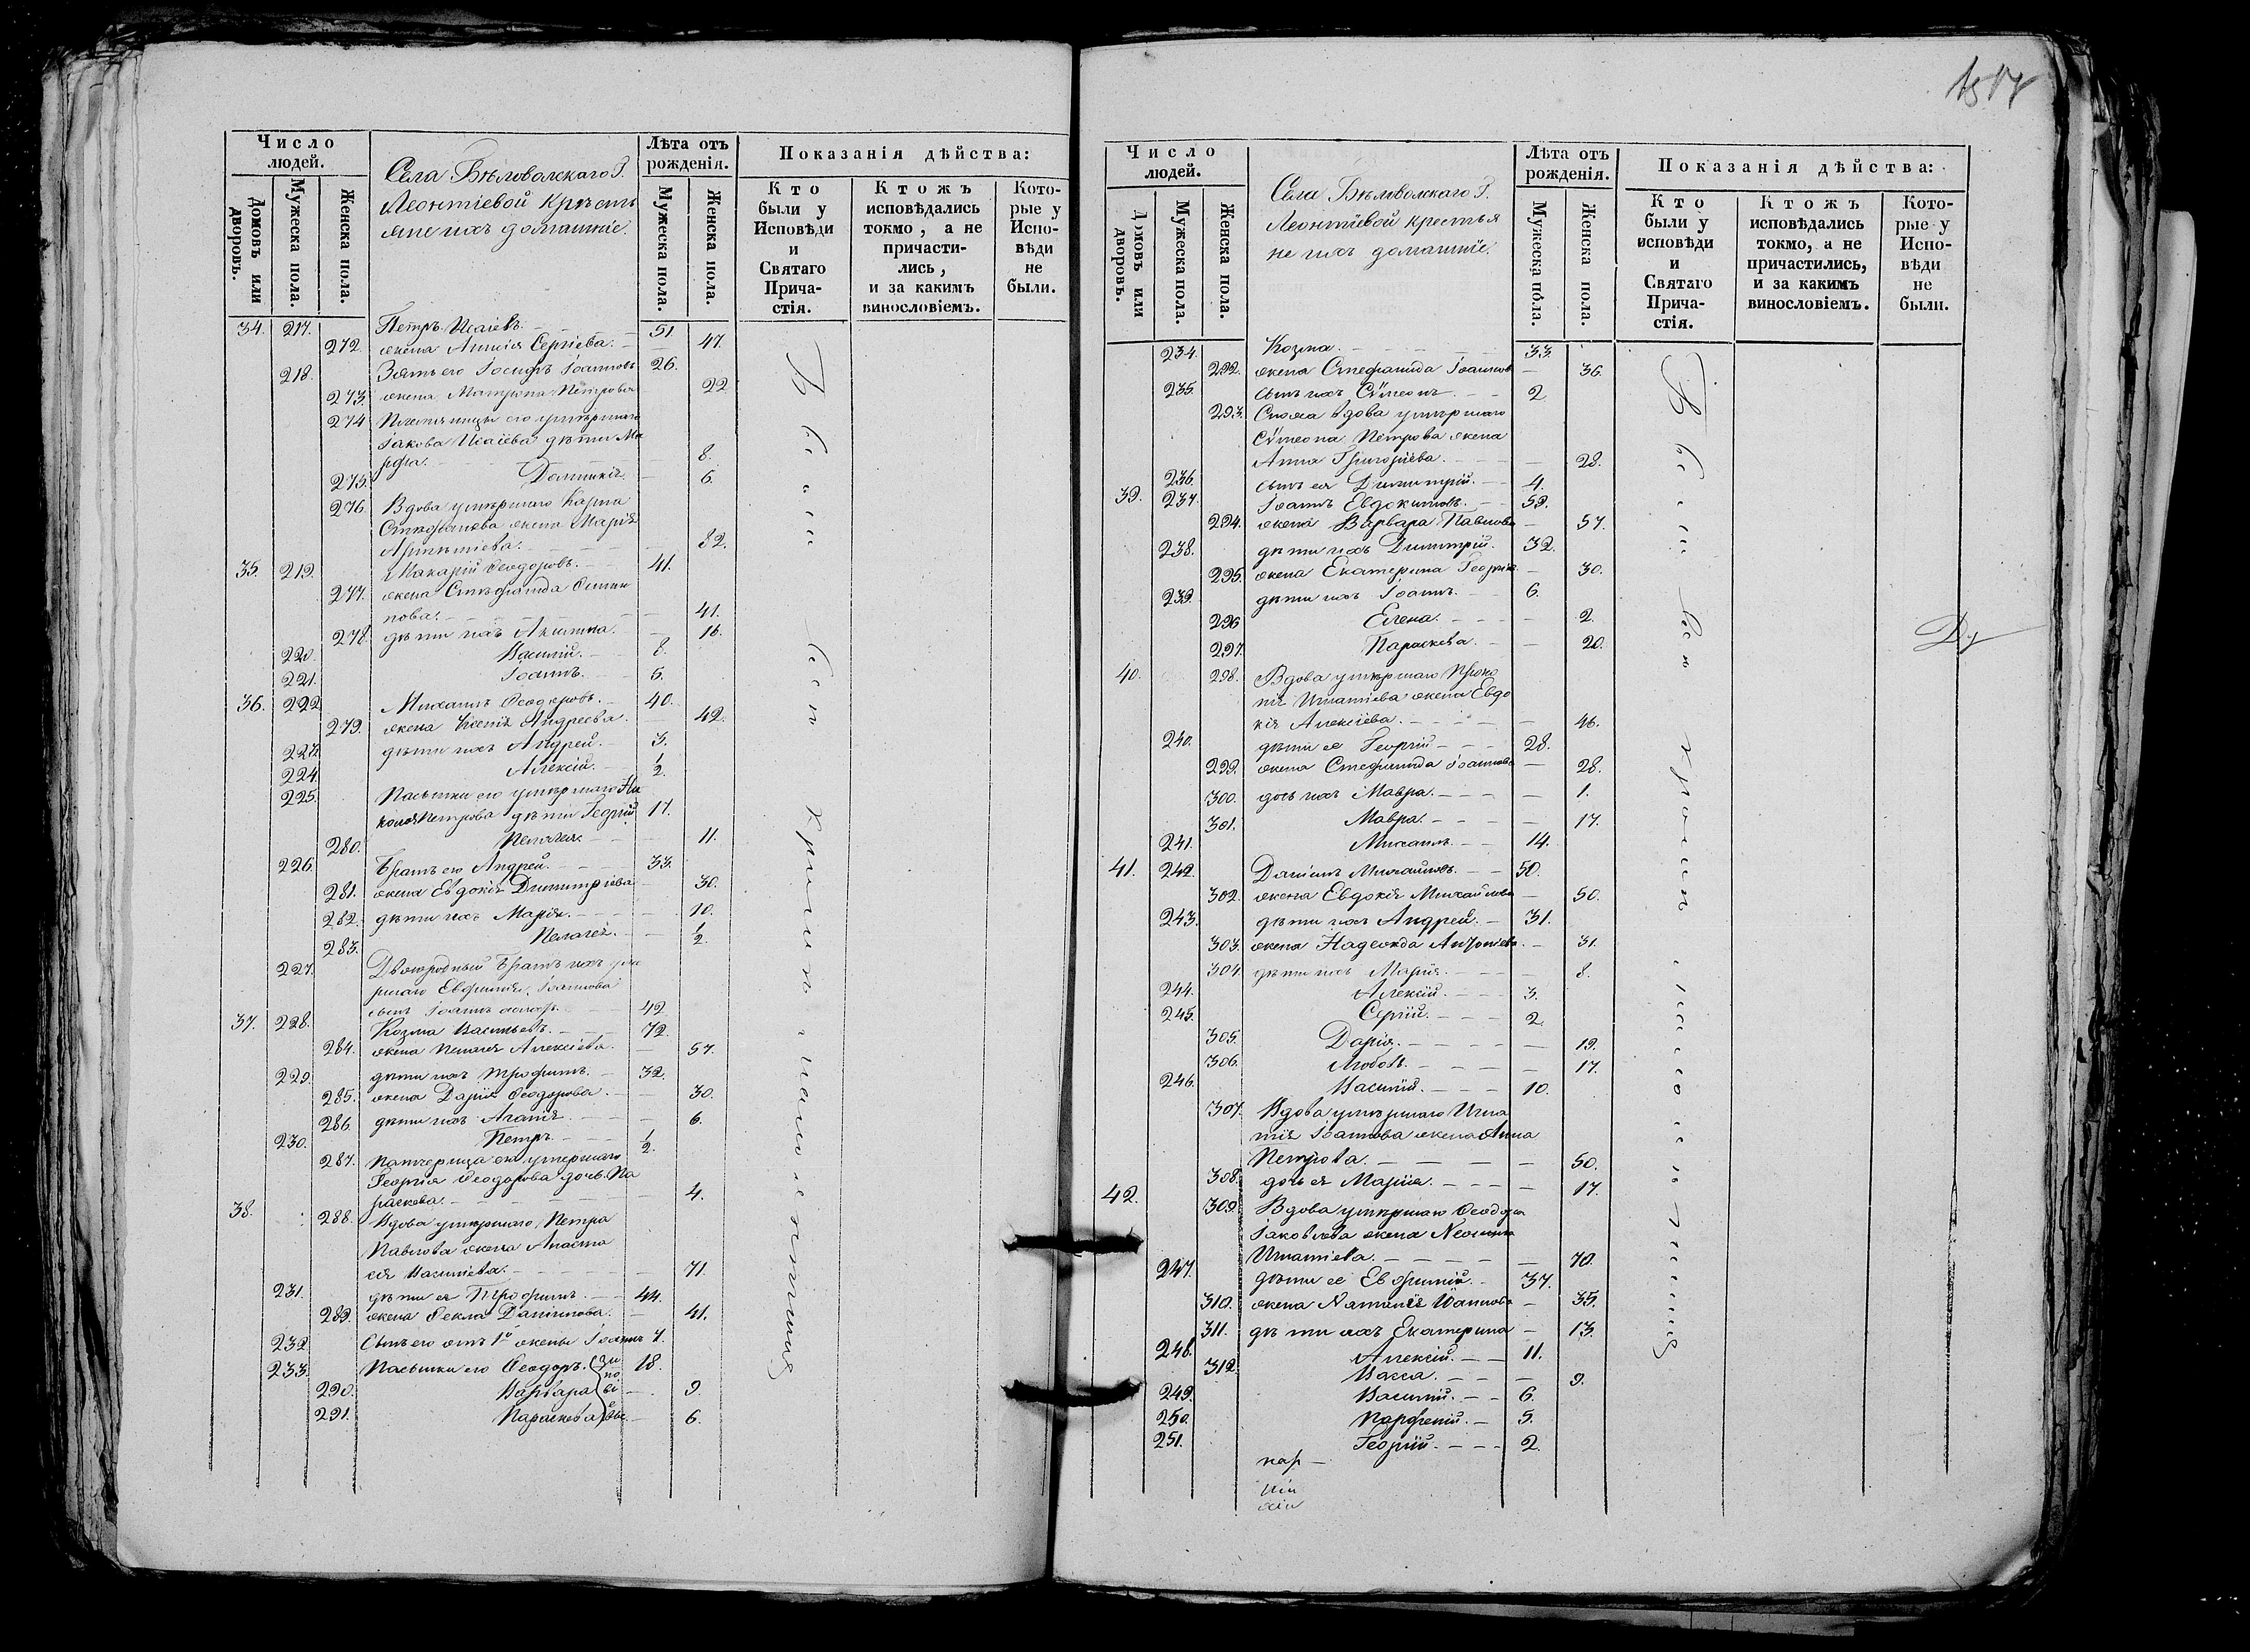 Число людей.
Домовъ или дворовъ.
Мужеска пола.
Женска пола.
Села Бѣловолскаго Г.
Леонтіевой Крѣстъ
яне ихъ домашніе.
Лѣта отъ рожденія.
Мужеска пола.
Женска пола.
Показанія дѣйства:
Кто были у Исповѣди и Святаго Причастія.
Ктожъ исповѣдались токмо, а не причастились, и за какимъ винословіемъ.
Которые у Исповѣди не были.
34. 217. Петръ Исаіевъ. 51.
272. жена Анисія Сергіева. 47.
218. Зять его Іосифъ Іоанновъ 26.
273. жена Матрона Петрова 22
274 Племяницы его умѣршаго
Іакова Исаіева дѣти Ма
рфа. 8.
275. Домникія. 6.
276. Вдова умѣршаго Карпа
Стефанова жена Марія
82.
35. 219. Макарій Ѳеодоровъ. 41.
277. жена Стефанида
нова. 41.
278. дѣти ихъ Акилина. 16.
220. Василій. 8.
221. Іоаннъ. 6.
36. 222 Михаилъ Ѳеодоровъ. 40.
279. жена Ксенія Андреева. 42.
223. дѣти ихъ Андрей. 3.
224. Алексій. 1/2.
225. Пасынки его умѣршаго Ни
колая Петрова дѣти Георгій 17.
280. Пелагея. 11.
226. Братъ его Андрей. 33.
281. жена Евдокія Димитріева 30.
282. дѣти ихъ Марія. 10.
283. Пелагея. 1/2.
227. Двоюродный братъ ихъ уме
ршаго Евфимія Іоаннова
сынъ Іоаннъ 42
37. 228. Козма Васильевъ. 72.
284. жена Пелагея Алексіева. 57.
229. дѣти ихъ Трофимъ. 32.
285. жена Дарія Ѳеодорова. 30.
286. дѣти ихъ Агапія. 6.
230. Петръ. 1/2.
287. Патчерица ея умершаго
Георгія Ѳеодорова дочь Па
раскева. 4.
38. 288. Вдова умѣршаго Петра
Павлова жена Анаста
сія Василіева. 71.
231. дѣти ея Трофимъ. 44.
289. жена Ѳекла Даніилова. 41.
232. Сынъ его отъ 1й жены Іоаннъ 7.
233. Пасынки его Ѳеодоръ. 18.
290. Варвара 9.
291. Параскева 6.
Всѣ
15
Число людей.
Домовъ или дворовъ.
Мужеска пола.
Женска пола.
Села Бѣловолскаго Г.
Леонтіевой крестья
не ихъ домашніе.
Лѣта отъ рожденія.
Мужеска пола.
Женска пола.
Показанія дѣйства:
Кто были у исповѣди и Святаго Причастія.
Ктожъ исповѣдались токмо, а не причастились, и за какимъ винословіемъ.
Которые у Исповѣди не были.
234. Козма. 33.
292. жена Стефанида Іоаннов 36.
235. сынъ ихъ Сѵмеонъ. 2
293. Сноха вдова умѣршаго
Сѵмеона Петрова жена
Анна Григоріева. 28.
236. сынъ ея Димитрій. 4.
39. 237. Іоаннъ Евдокимовъ. 59.
294. жена Варвара Павлова 57.
238. дѣти ихъ Димитрій. 32.
295. жена Екатерина Георгіе 30.
239. дѣти ихъ Іоаннъ. 6.
296 Елена. 2.
297. Параскева. 20.
40. 298. Вдова умѣршаго Проко
пія Игнатіева жена Евдо
кія Алексіева. 46.
240. дѣти ее Георгій 28.
299. жена Стефанида Іоаннова 28.
300. дочь ихъ Мавра. 1.
301. Мавра. 17.
241. Михаилъ. 14.
41. 242. Даніилъ Михаиловъ. 50.
302. жена Евдокія Михайлова 50.
243. дѣти ихъ Андрей. 31.
303. жена Надежда Антоніева. 31.
304 дѣти ихъ Марія. 8.
244. Алексій. 3.
245. Сергій. 2.
305. Дарія. 19.
306. Любовь. 17.
246. Василій. 10.
307. Вдова умѣршаго Игна
тія Іоаннова жена Анна
Петрова. 50.
308. дочь ея Марія. 17.
42. 309. Вдова умѣршаго Ѳеодора
Іаковлева жена Неонила
Игнатіева. 70.
247. дѣти ее Евфимій. 37.
310. жена Наталія Іоаннова 35.
311. дѣти ихъ Екатерина 13.
248. Алексій. 11.
312. Васса. 9.
249. Василій. 6.
250. Парфеній. 5.
251. Георгій. 2.